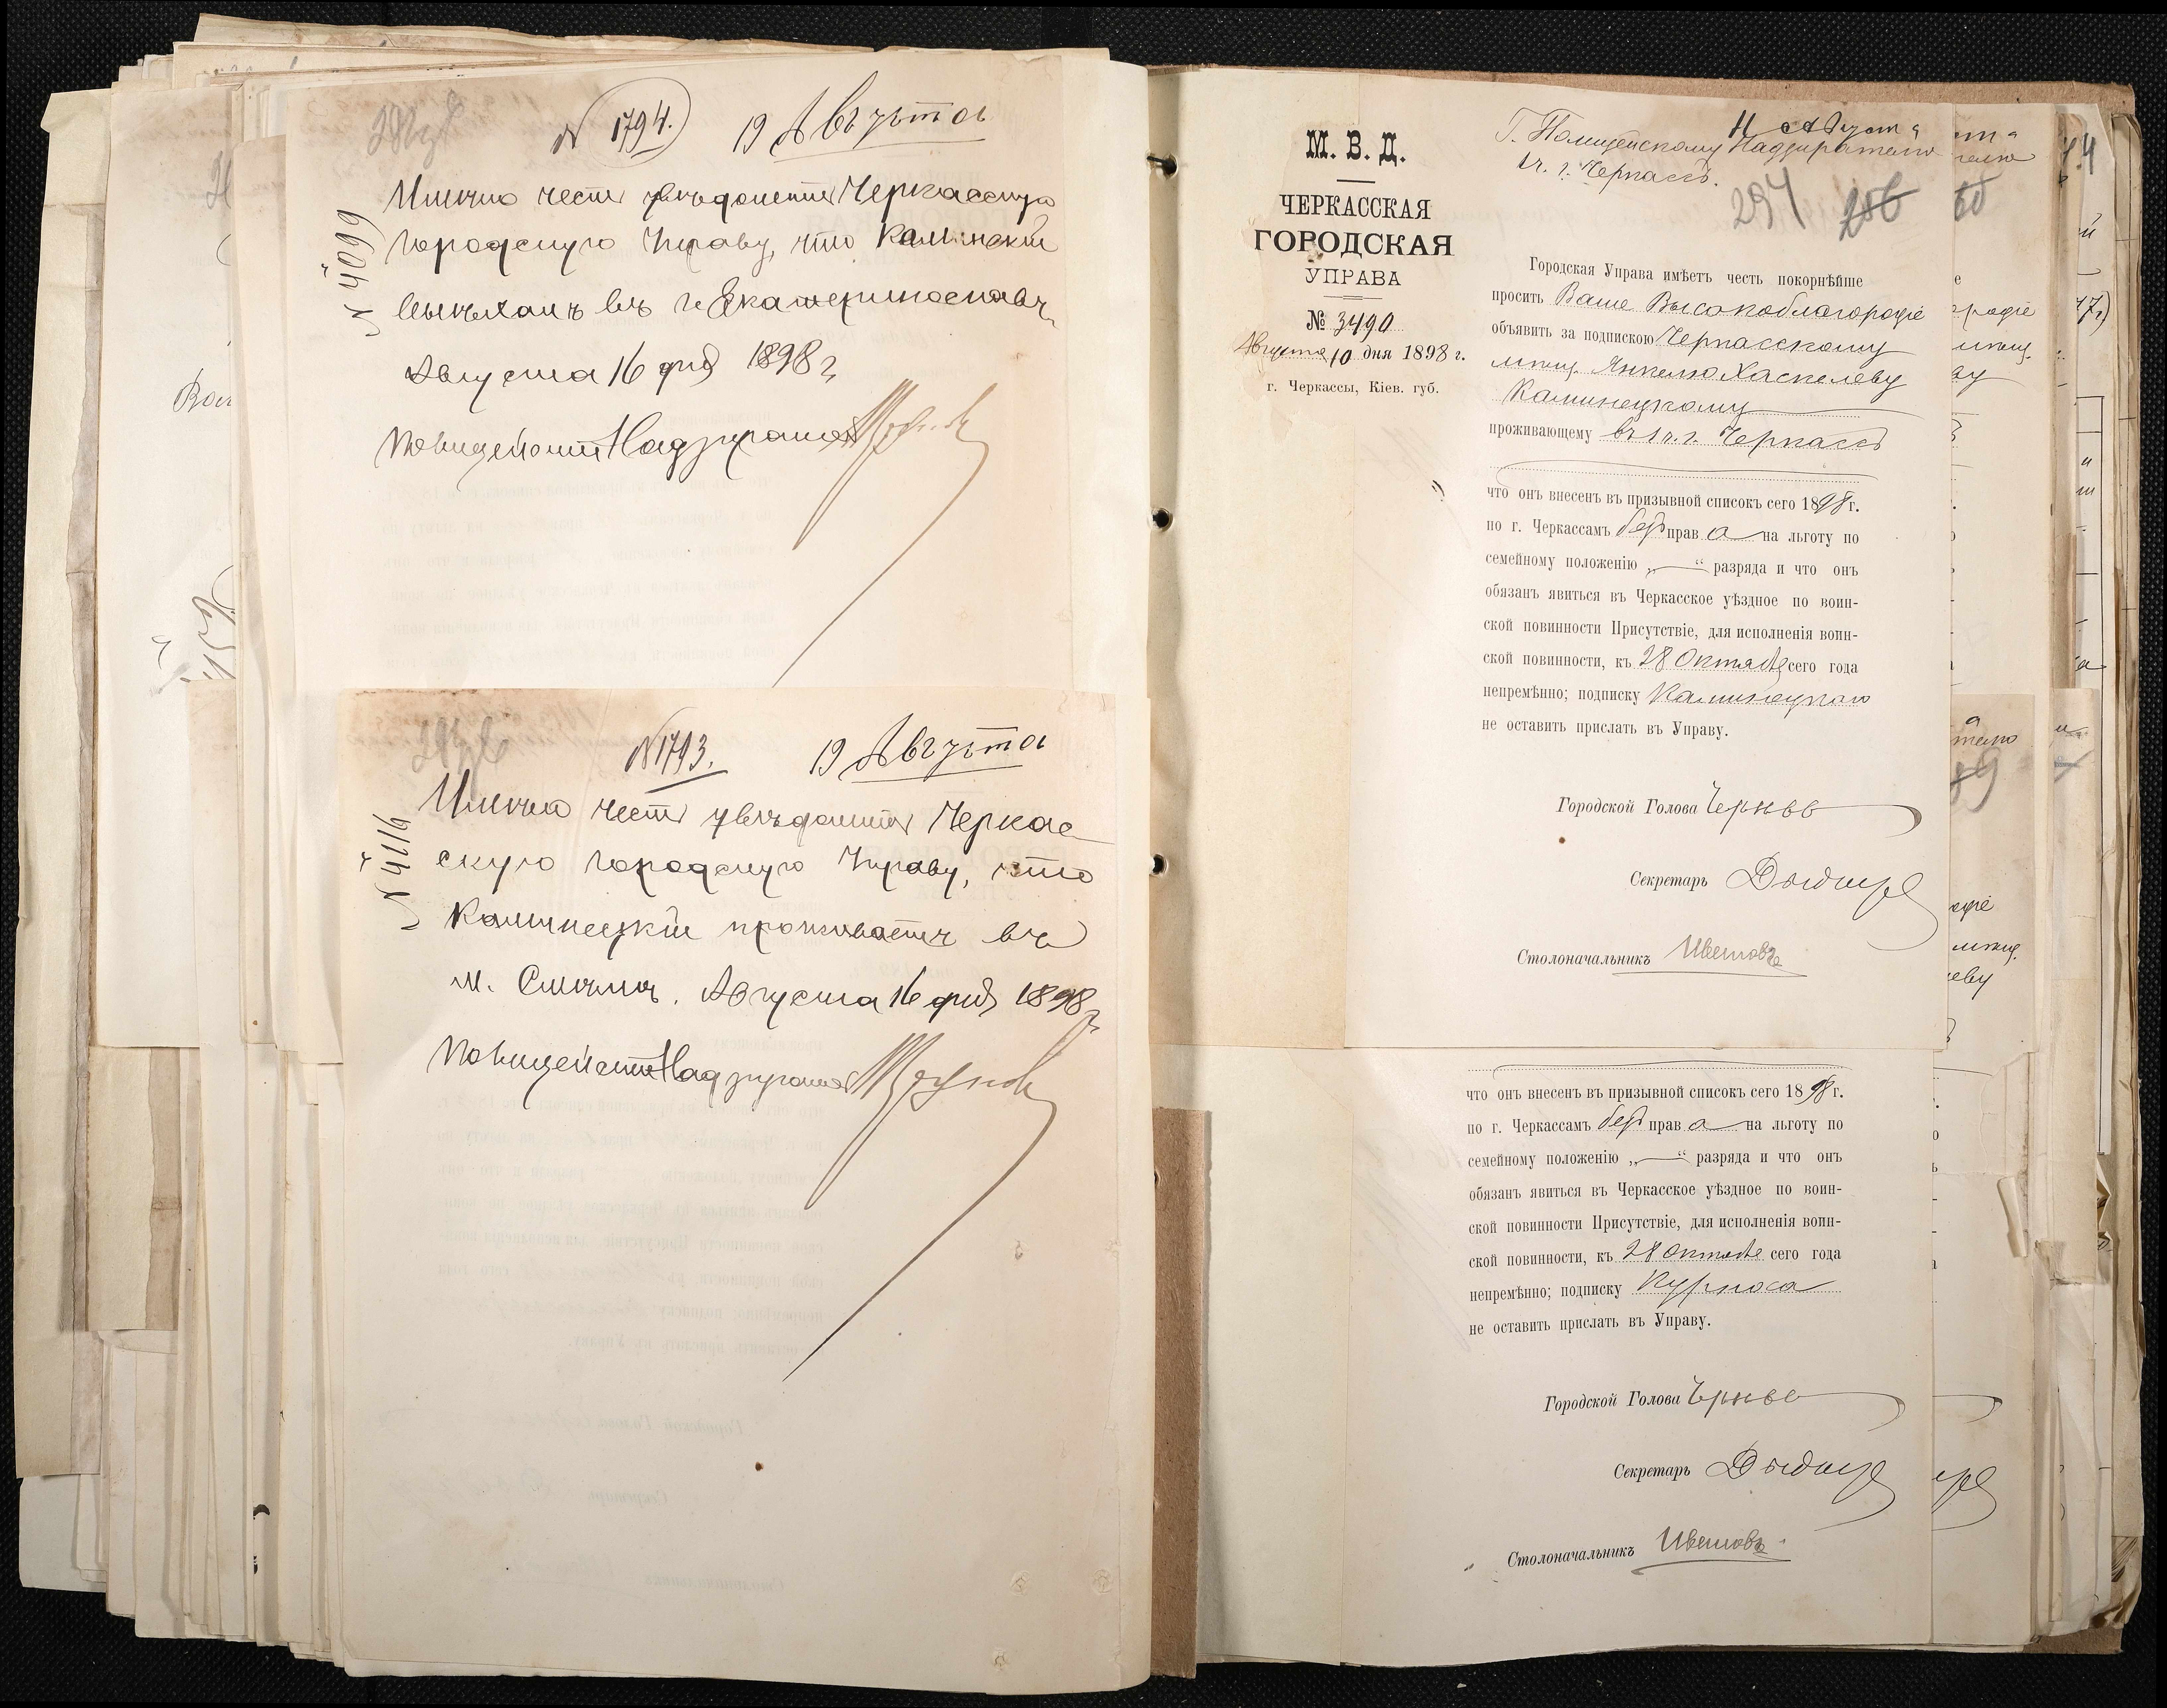 № 1794. 19 Августа
№ 4099
Имѣю честь увѣдомить Черкасскую
Городскую Управу, что Каминскій
выѣхалъ въ г. Екатеринославъ,
Августа 16 дня 1898 г.
Полицейскій Надзиратель
№ 1793. 19 Августа
№ 4116
Имѣю честь увѣдомить Черкас-
скую Городскую Управу, что
Каминецкій проживаетъ въ
м. Смѣлѣ. Августа 16 дня 1898 г.
Полицейскій Надзиратель
М. В. Д.
ЧЕРКАССКАЯ
ГОРОДСКАЯ
УПРАВА
№ 3490
Августа 10 дня 1898 г.
г. Черкассы, Кіев. губ.
11 августа
Г. Полицейскому Надзирателю
1 ч. г. Черкассъ.
294
Городская Управа имѣетъ честь покорнѣйше
просить Ваше Высокоблагородіе
объявить за подпискою Черкасскому
мѣщ. Янкелю Хаскелеву
Каминецкому
проживающему въ 1 ч. г. Черкассъ
что онъ внесенъ въ призывной списокъ сего 1898 г.
по г. Черкассамъ безъ права на льготу по
семейному положенію „—“ разряда и что онъ
обязанъ явиться въ Черкасское уѣздное по воин-
ской повинности Присутствіе, для исполненія воин-
ской повинности, къ 28 Октября сего года
непремѣнно; подписку Каминецкаго
не оставить прислать въ Управу.
Городской Голова
Секретарь
Столоначальникъ
что онъ внесенъ въ призывной списокъ сего 1898 г.
по г. Черкассамъ безъ права на льготу по
семейному положенію „—“ разряда и что онъ
обязанъ явиться въ Черкасское уѣздное по воин-
ской повинности Присутствіе, для исполненія воин-
ской повинности, къ 28 Октября сего года
непремѣнно; подписку Курноса
не оставить прислать въ Управу.
Городской Голова
Секретарь
Столоначальникъ